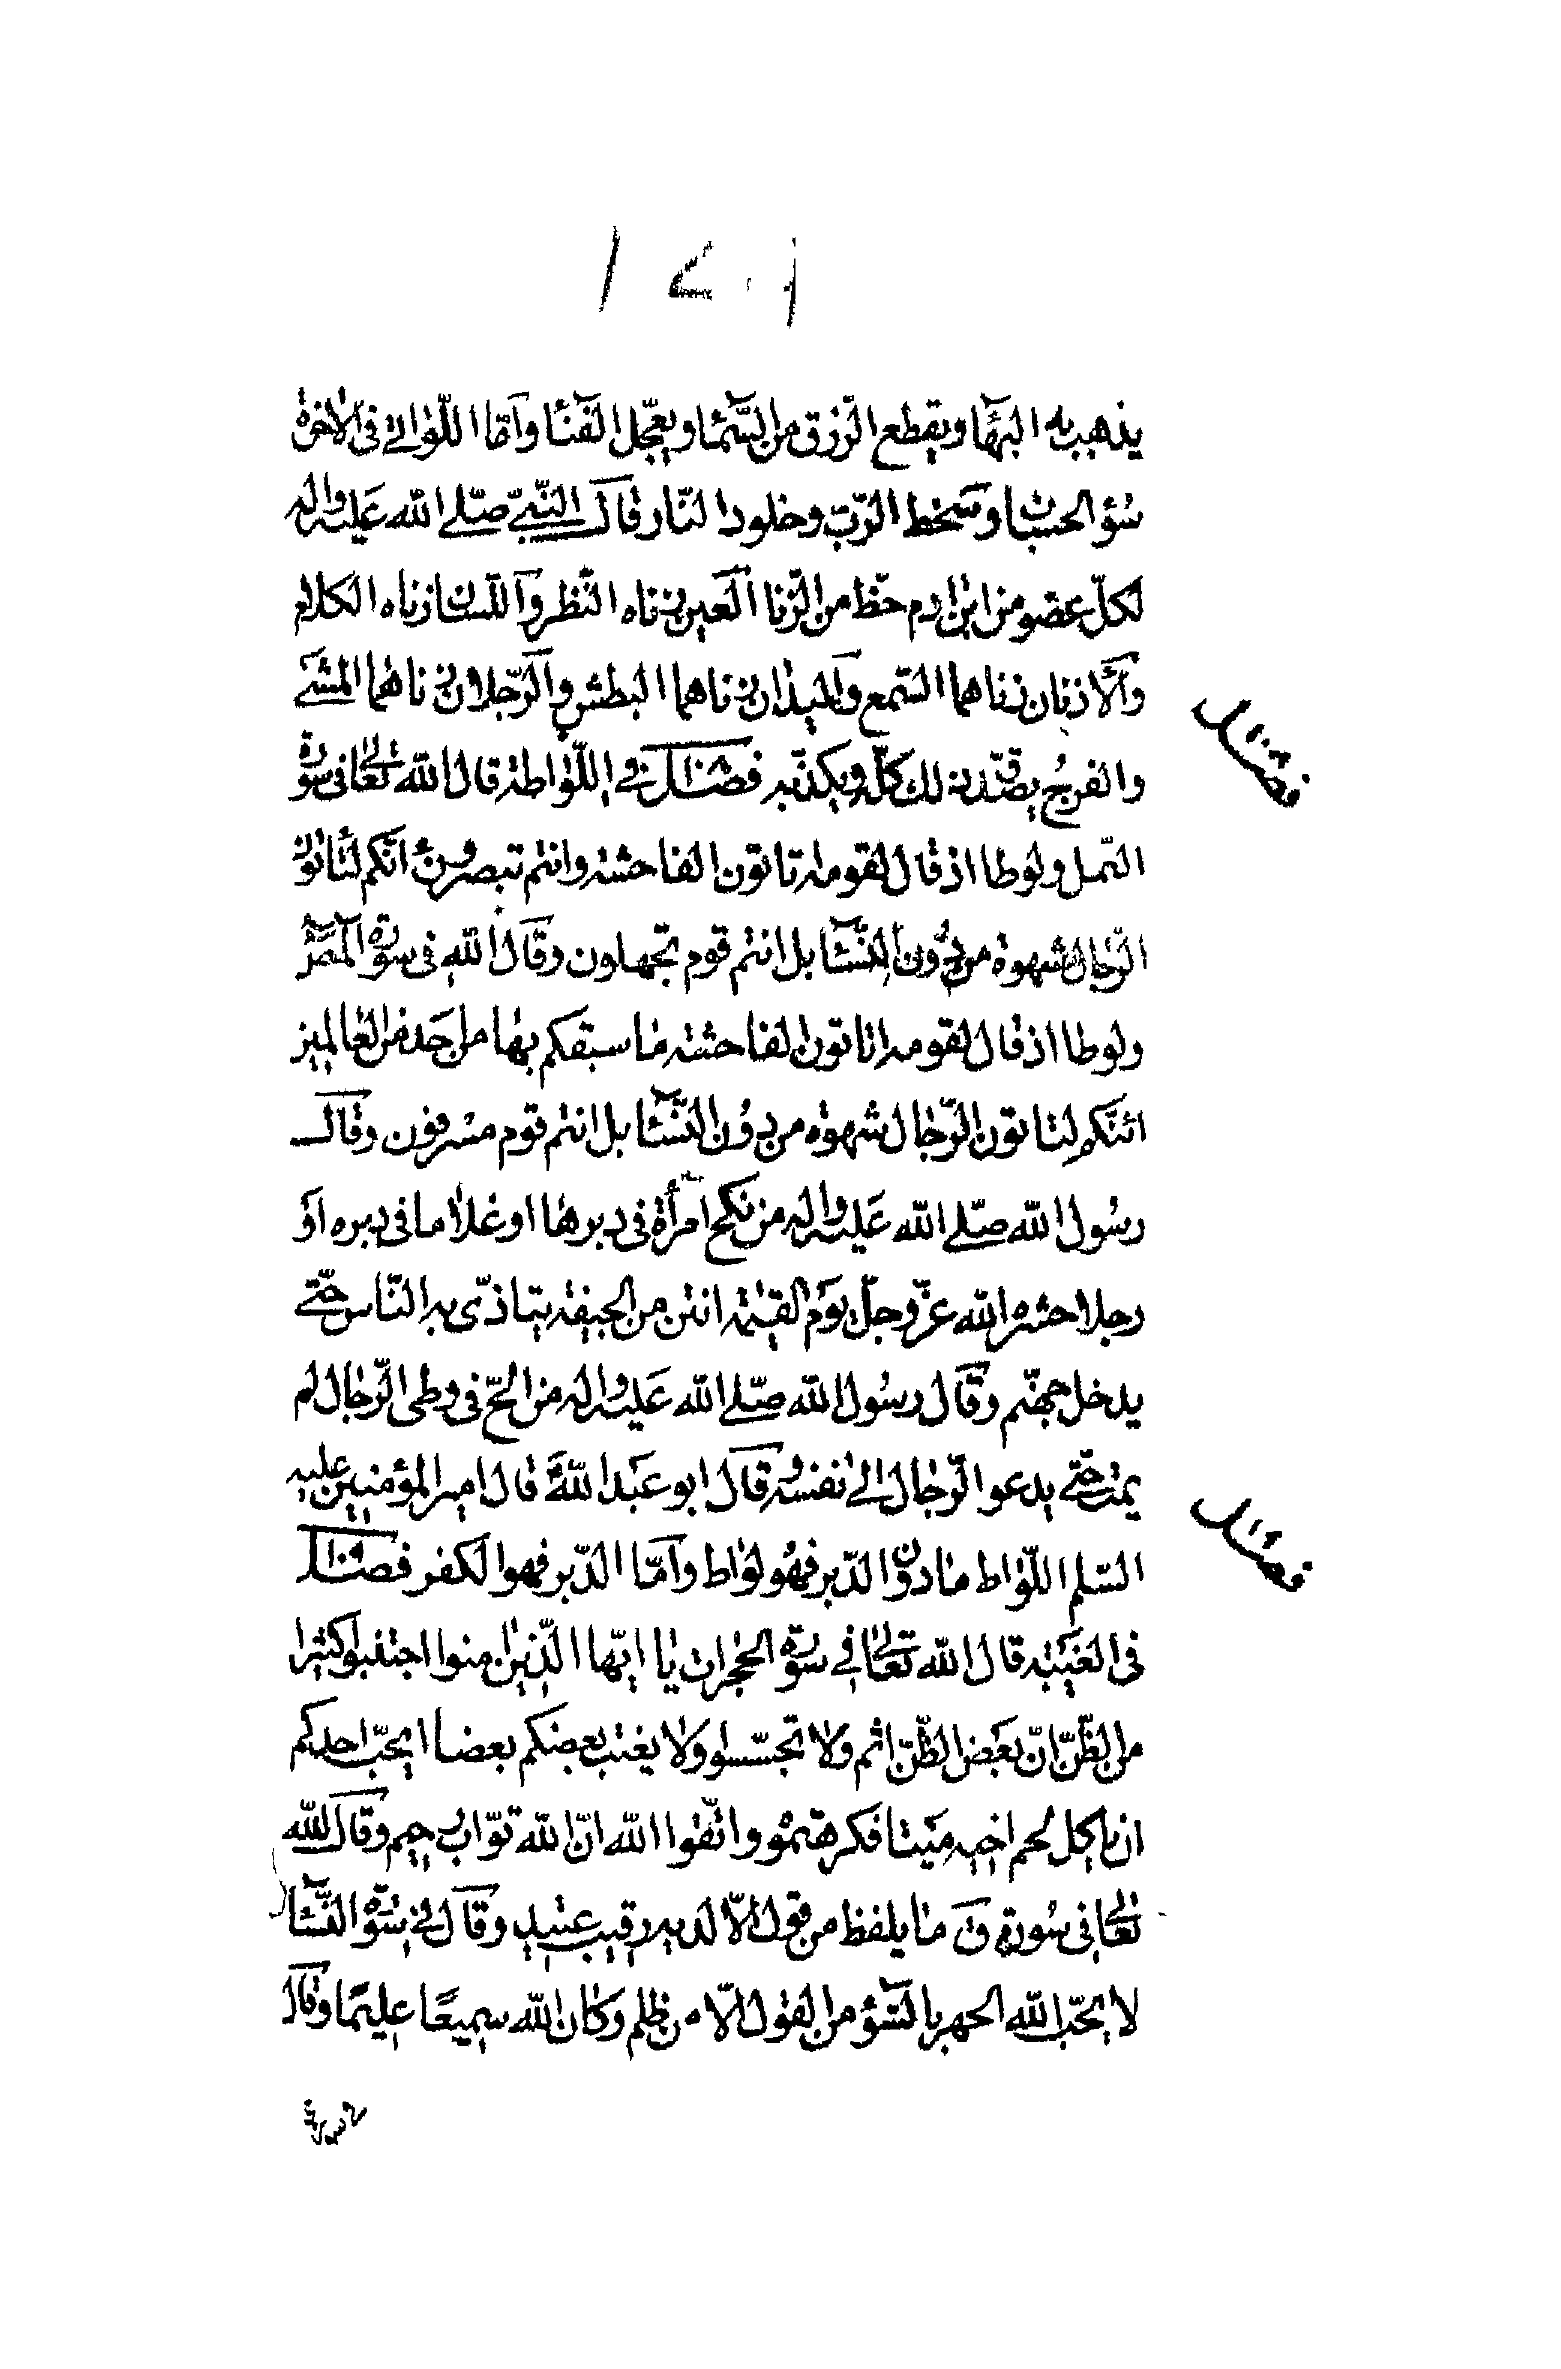 يذهب به البهاء ويقطع الرزق من السماء ويعجّل الفناء وامّا اللواتى فى الاخرة
سوء الحساب وسخط الرّبّ وخلود النّار قال النّبىّ صلّى الله عليه واله
لكلّ عضو من ابن ادم حظّ من الزّنا العين زناه النّظر واللّسان زناه الكلام
والاذنان زناهما السّمع واليدان زناهما البطش والرّجلان زناهما المشى
والفرج يصدّق ذلك كلّه ويكذّبه فصل فى اللّواطة قال الله تعالى فى سورة
النّمل ولوطا اذ قال لقومه تاتون الفاحشة وانتم تبصرون ائنّكم لتاتون
الرّجال شهوة من دون النّساء بل انتم قوم تجهلون وقال الله فى سورة
ولوطا اذ قال لقومه اتاتون الفاحشة ما سبقكم بها من احد من العالمين
ائنّكم لتاتون الرّجال شهوة من دون النّساء بل انتم قوم مسرفون وقال
رسول الله صلّى الله عليه واله من نكح امرأة فى دبرها او غلاما فى دبره او
رجلا حشره الله عزّ وجلّ يوم القيٰمة انتن من الجيفة يتاذّى به النّاس حتّى
يدخل جهنّم وقال رسول الله صلّى الله عليه واله من الحّ فى وطى الرّجال لم
يمت حتّى يدعو الرّجال الى نفسه وقال ابو عبد الله قال امير المؤمنين عليه
السّلم اللّواط ما دون الدّبر فهو لواط وامّا الدّبر فهو الكفر فصل
فى الغيبة قال الله تعالى فى سورة الحجرات يا ايّها الّذين امنوا اجتنبوا كثيرا
من الظّنّ انّ بعض الظّنّ اثم ولا تجسّسوا ولا يغتب بعضكم بعضا ايحبّ احدكم
ان ياكل لحم اخيه ميتا فكرهتموه واتّقوا الله انّ الله توّاب رحيم وقال الله
تعالى فى سورة ق ما يلفظ من قول الّا لديه رقيب عتيد وقال فى سورة النّساء
لا يحبّ الله الجهر بالسّوء من القول الّا من ظلم وكان الله سميعًا عليمًا وقال
فصل
فصل